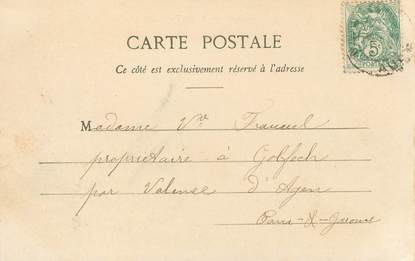 CARTE POSTALE
Ce côté est exclusivement réservé à l'adresse
5
Madame Vve
propriétaire à Golfech
par Valense d'Agen